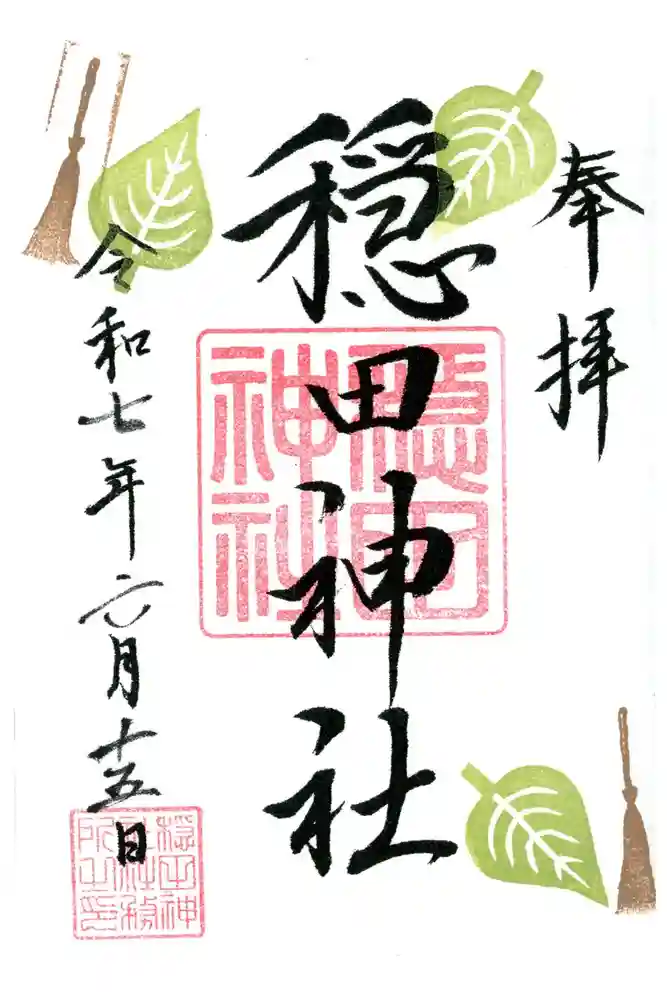 奉拝
穏田神社
令和七年六月十五日
穏田神社
穏田神社社務所之印